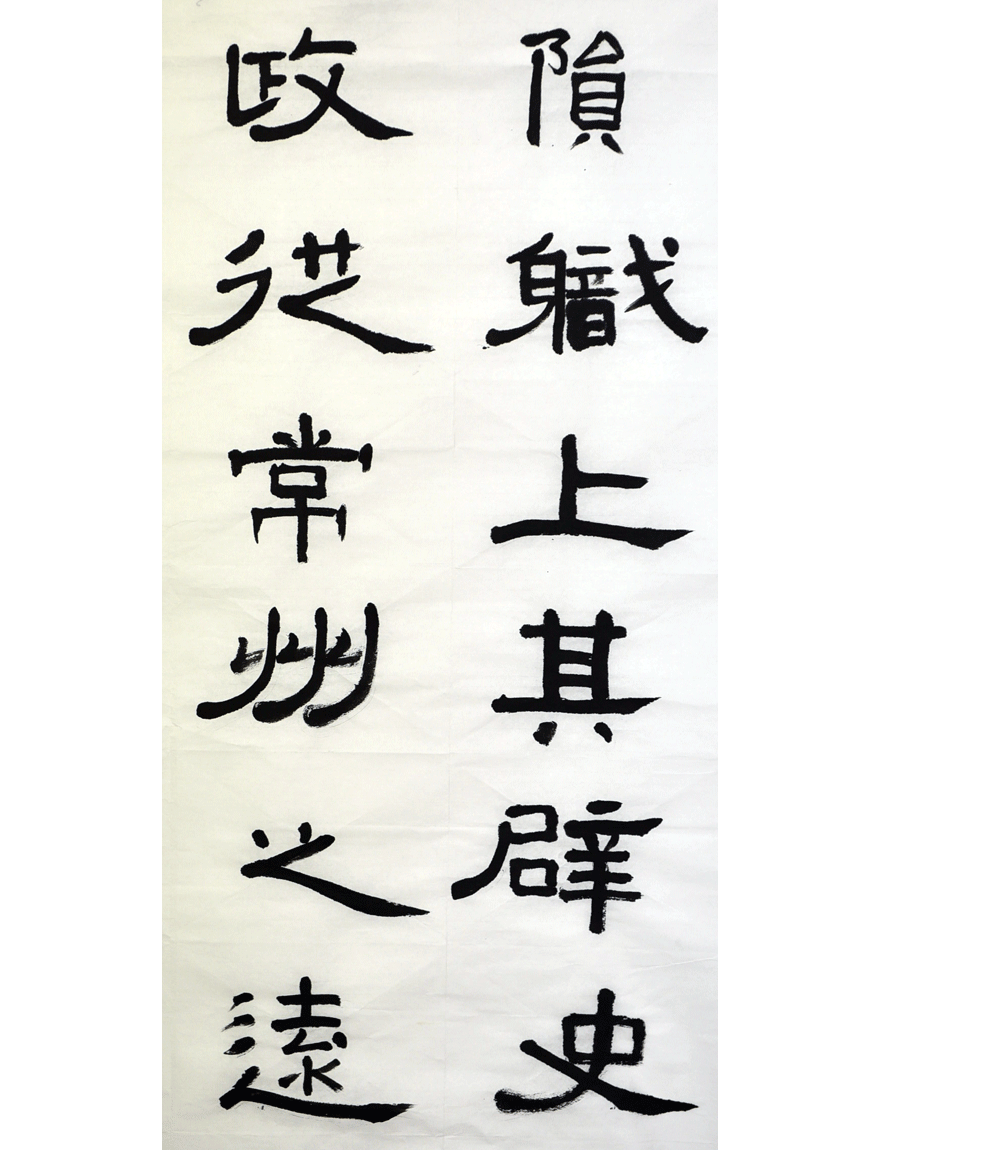 隕軄上其辟史
政從常州之遠